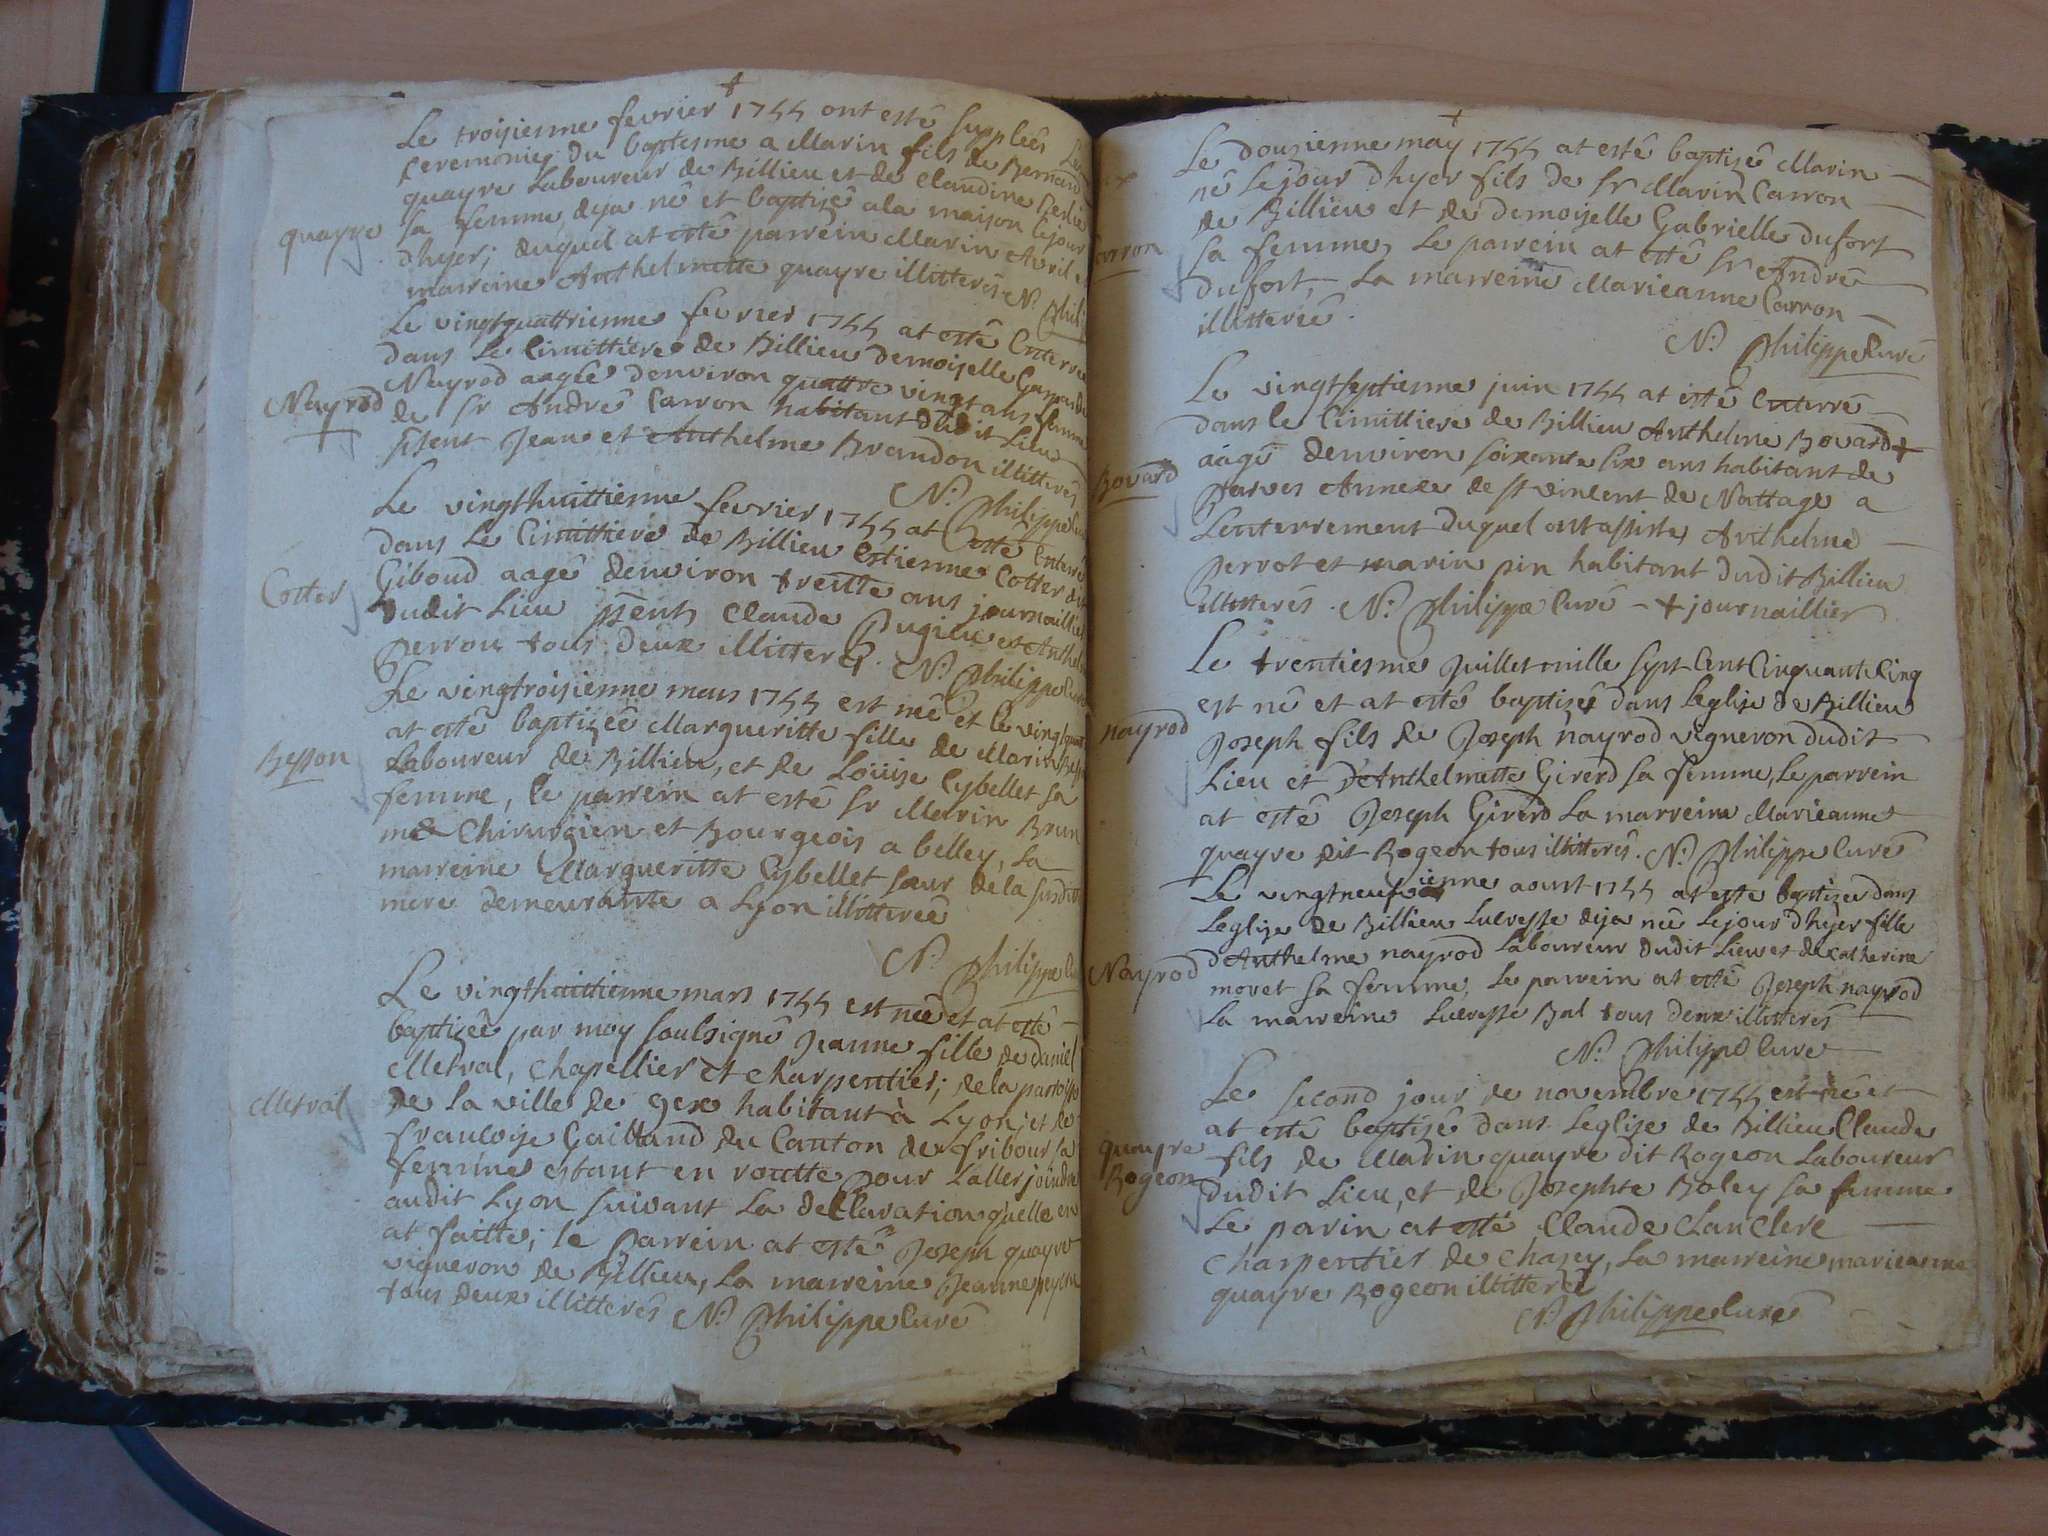 Le troisiesme fevrier 1755 ont esté supplées Les
ceremonies du baptesme a Marin fils de Bernard
quayre Laboureur de Billieu et de Claudine
quayre
sa femme, deja né et baptizé a la maison le jour
d'hyer; duquel at esté parrein Marin Avril et
marreine Anthelmette quayre illitterés N. Phili
Le vingtquattrienne fevrier 1755 at esté Enterrée
dans Le Cimittiere de Billieu demoiselle
Nayrod
Nayrod aagée denviron quattre vingt ans femme
de Sr André Carron habitant dudit Lieu
psent Jean et Anthelme Brandon illitterés
N. Philippe Curé
Le vingthuittienne fevrier 1755 at esté Enterré
dans Le Cimittiere de Billieu Estienne Cotter dit
Cotter
Giboud aagé denviron trentte ans journaillier
dudit Lieu psents Claude Pugieu et Anthelme
perron tous deux illitterés. N. Philippe Curé
Le vingtroisienne mars 1755 est née et le vingtquatt
at esté baptizée Margueritte fille de Marin Besson
Besson
Laboureur de Billieu, et de Loüise Cybellet sa
femme, le parrein at esté Sr Marin Brun
me Chirurgien et Bourgeois a belley, La
marreine Margueritte Cybellet sœur de la susditte
mere demeurante a Lyon illitterée
N. Philippe Cu
Le vingthuittienne mars 1755 est née et at esté
baptizée par moy soulsigné Jeanne fille de daniel
Metral
Metral, chapellier et charpentier; de la parroisse
de la ville de gex habitant à Lyon; et de
françoise Gailland du Canton de fribour sa
femme estant en routte pour L'aller joindre
audit Lyon suivant La declaration qu'elle en
at faitte; le parrein at esté Joseph quayre
vigneron de Billieu, La marreine Jeanne
tous deux illitterés N. Philippe Curé
Le dousienne may 1755 at esté baptizé Marin
né Le jour d'hyer fils de Sr Marin Carron
Carron
de Billieu et de demoiselle Gabrielle dufort
sa femme, Le parrein at esté Sr André
dufort, La marreine Marieanne Carron
illitterée.
N. Philippe Curé
Le vingtseptienne juin 1755 at esté Enterré
dans le Cimittiere de Billieu Anthelme Bovard +
Bovard
aagé denviron soixante six ans habitant de
parves Annexe de St vincent de Nattage a
L'enterrement duquel ont assisté Anthelme
perrot et marin pin habitant dudit Billieu
illitterés. N. Philippe Curé - + journaillier
Le trentiesme Juillet mille sept Cent Cinquante Cinq
est né et at esté baptizé dans Leglise de Billieu
nayrod
Joseph fils de Joseph nayrod vigneron dudit
Lieu et D'Anthelmette Girerd sa femme, Le parrein
at esté Joseph Girerd La marreine Marieanne
quayre dit Rogeon tous illitterés. N. Philippe Curé
Le vingtneufvienne aoust 1755 at esté baptizée dans
Leglise de Billieu Lucresse deja née Le jour d'hyer fille
Nayrod
d'Anthelme nayrod Laboureur dudit Lieu et de catherine
moret sa femme, Le parrein at esté Joseph nayrod
La marreine Lucresse Bal tous deux illitterés
N. Philippe Curé
Le second jour de novembre 1755 est né et
at esté baptizé dans Leglise de Billieu Claude
quayre
Rogeon
fils de Marin quayre dit Rogeon Laboureur
dudit Lieu, et de Josephte Boley sa femme
Le parin at esté Claude Lanclere
charpentier de chazey, La marreine marieanne
quayre Rogeon illitteré
N. Philippe Curé